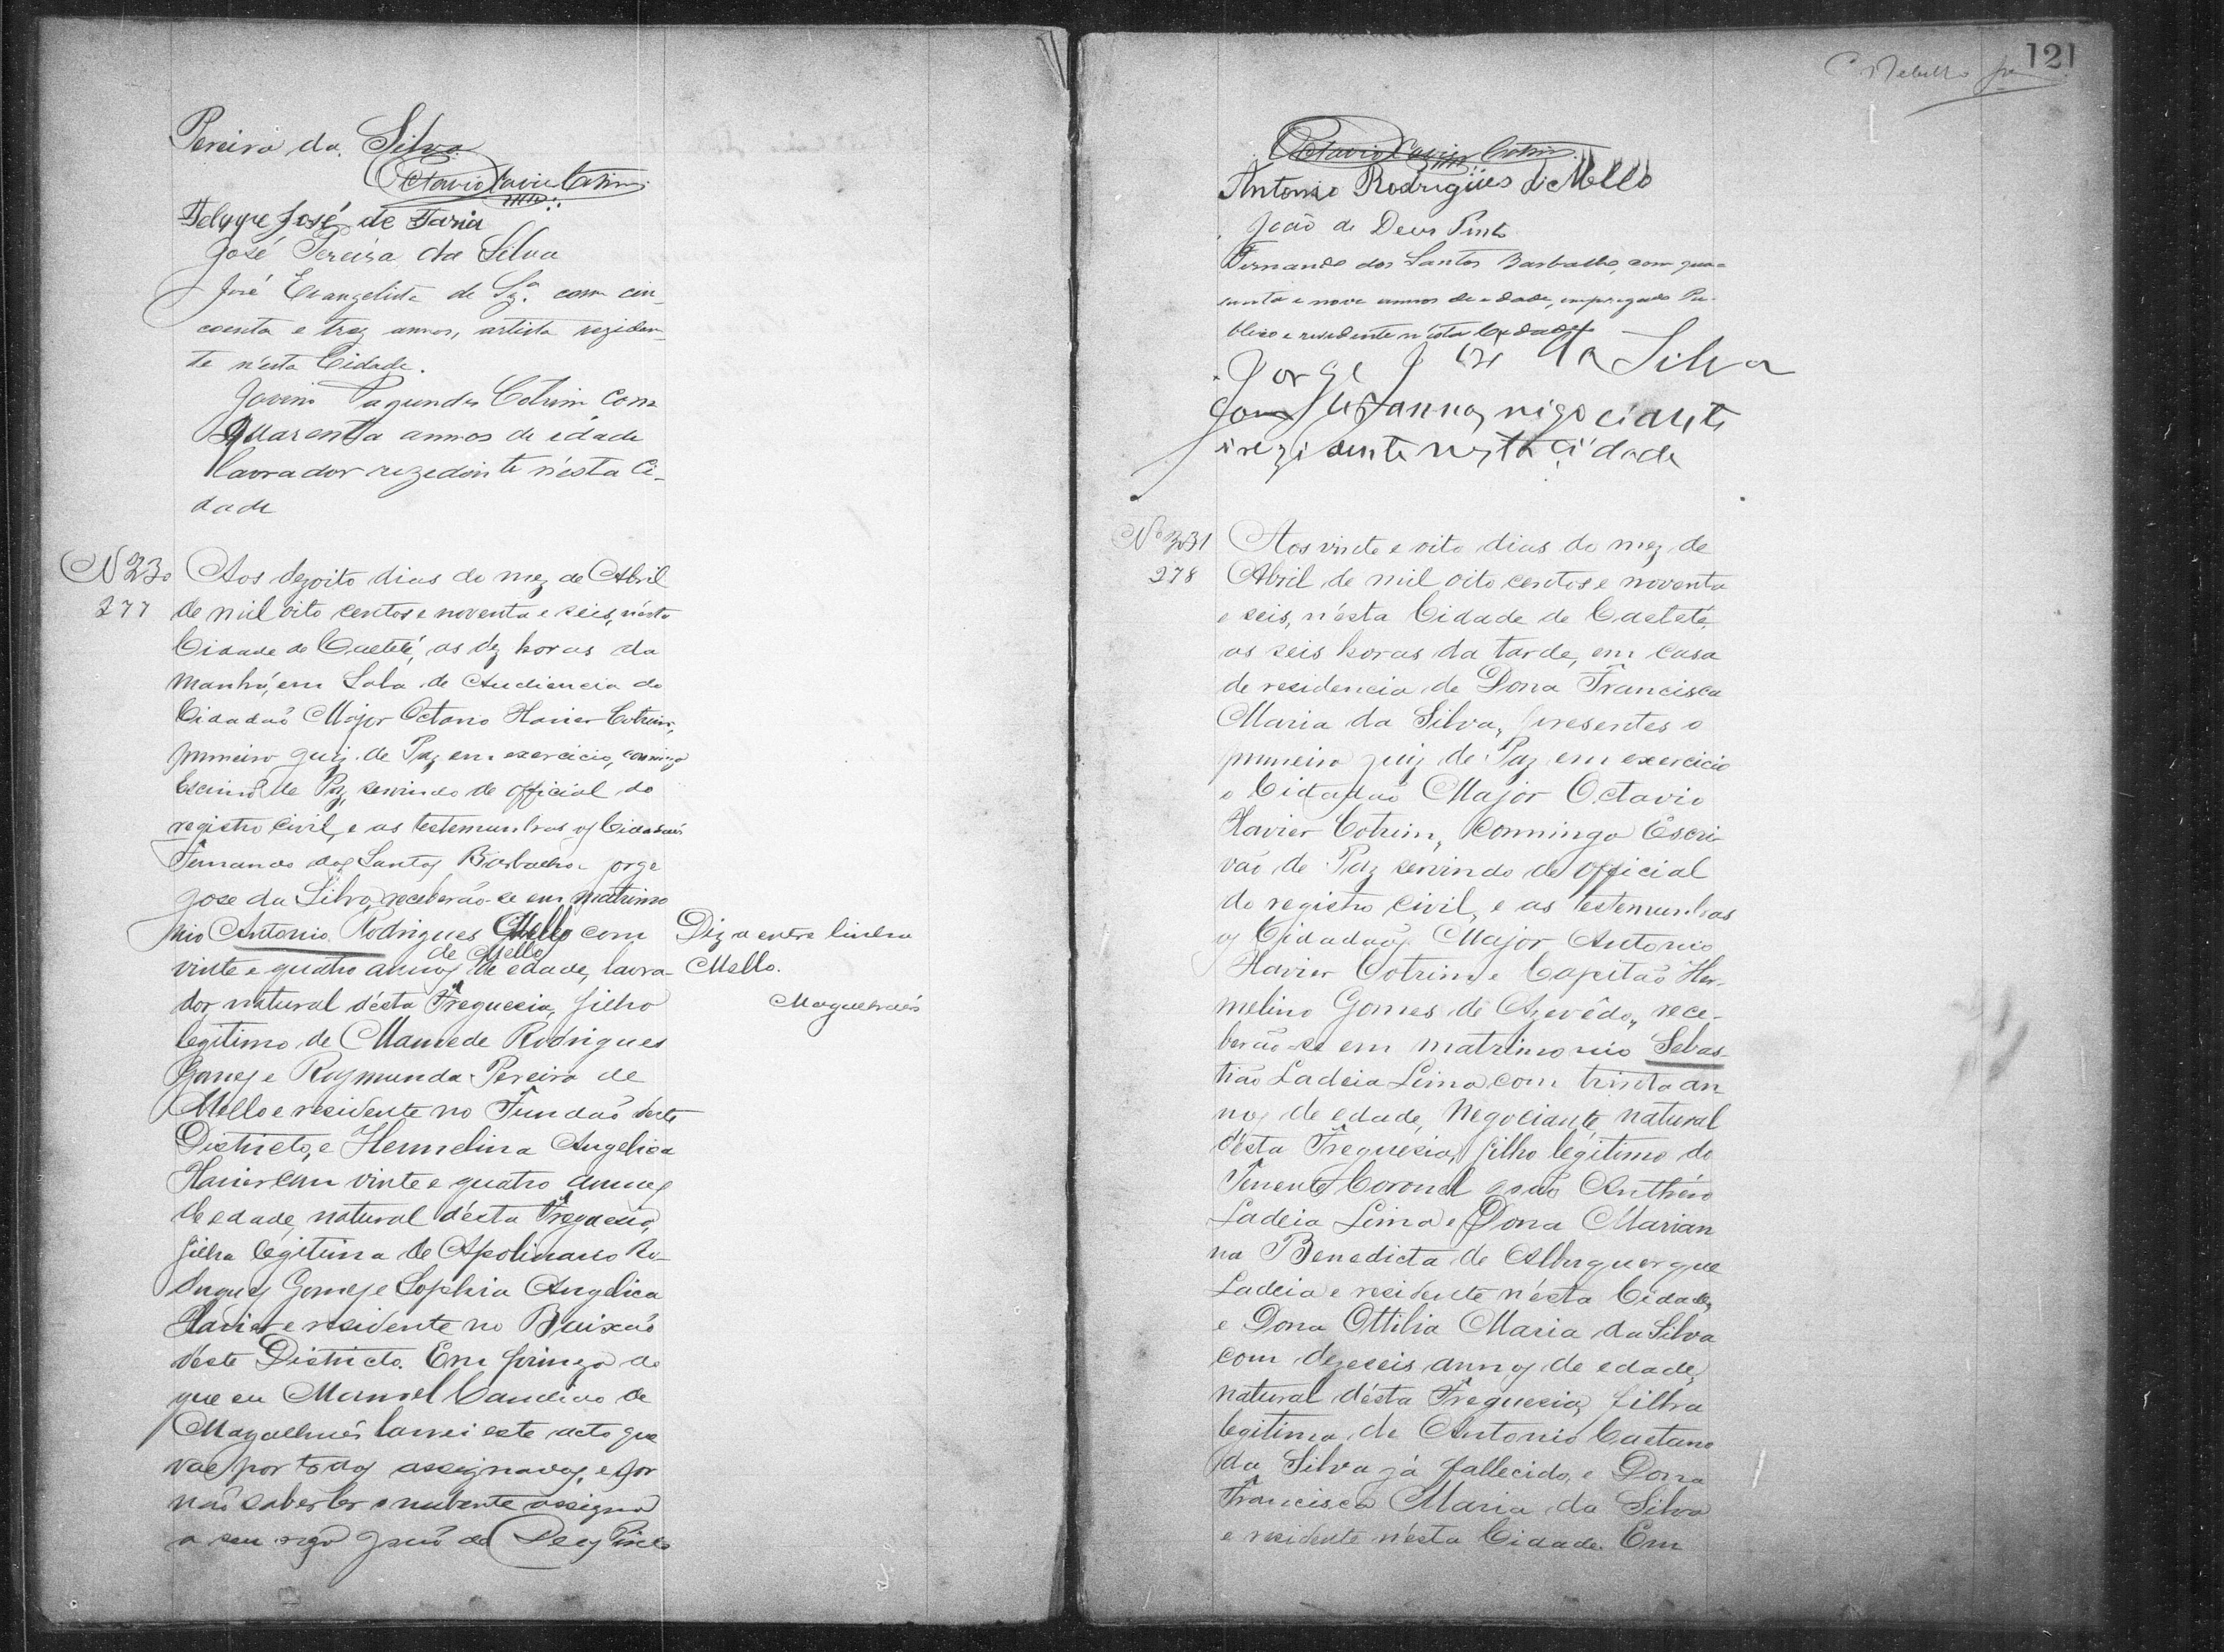 Pereira da Silva
Octavio Xavier Cotrim
Felippe José de Faria
José Pereira da Silva
José Evangelista de Sz.ª com cin-
coenta e trez annos, artista rezidem-
te n'esta Cidade.
Jovino Fagundes Cotrim Com
Quarenta annos de idade
lavrador rezedente n'esta Ci-
dade
N 230
277
Aos dezoito dias do mez de Abril
de mil oito centos e noventa e seis, n'esta
Cidade de Caeteté, as dez horas da
manhã, em Sala de Audiencia do
Cidadão Major Octavio Xavier Cotrim,
primeiro juiz de Paz em exercicio, commigo
Escrivão de Paz, servindo de official do
registro civil, e as testemunhas os Cidadãos
Fernando dos Santos Barbalho e Jorge
José da Silva, receberão-se em matrimo
nio Antonio Rodrigues Mello com
de Mello
vinte e quatro annos de edade, lavra-
dor, natural d'ésta Freguesia, filho
legitimo de Mamede Rodrigues
Gomes e Raymunda Pereira de
Mello e residente no Fundão deste
Districto, e Hermelina Angelica
Xavier com vinte e quatro annos
de edade, natural d'ésta Freguesia,
filha legitima de Apolinario Ro-
drigues Gomes e Sophia Angelica
Xavier e residente no Baixão
d'este Districto. Em firmeza do
que eu Manoel Candido de
Magalhães lavrei este acto que
vae por todos assignados, e por
não saber ler a nubente assigna
a seu rogo João de Deos Pinto
Diz a entre linha
Mello.
Magalhães
121
Octavio Xavier Cotrim
Antonio Rodrigües de Mello
João de Deus Pinto
Fernando dos Santos Barbalho, com qua-
renta e nove annos de edade, empregado Pu-
blico e residente n'ésta Cidade
Jorge José da Silva
Com annos, nigociante
i rezidente nesta Cidade
Nº 231
278
Aos vinte e oito dias do mez de
Abril de mil oito centos e noventa
e seis, n'ésta Cidade de Caeteté,
as seis horas da tarde, em casa
de residencia de Dona Francisca
Maria da Silva, presentes o
primeiro juiz de Paz em exercicio
o Cidadão Major Octavio
Xavier Cotrim, Commingo Escri-
vão de Paz servindo de official
do registro civil, e as testemunhas
os Cidadãos Major Antonio
Xavier Cotrim e Capitão Her-
melino Gomes de Azevêdo, rece-
berão-se em matrimonio Sebas-
tião Ladeia Lima com trinta an
nos de edade, Negociante, natural
d'ésta Freguesia, filho legitimo do
Tenente Coronel João Anthéro
Ladeia Lima e Dona Marian
na Benedicta de Albuquerque
Ladeia e residente n'ésta Cidade,
e Dona Ottilia Maria da Silva
com dezeseis annos de edade,
natural d'ésta Freguesia, filha
legitima de Antonio Caetano
da Silva já fallecido, e Dona
Francisca Maria da Silva
e residente n'ésta Cidade. Em